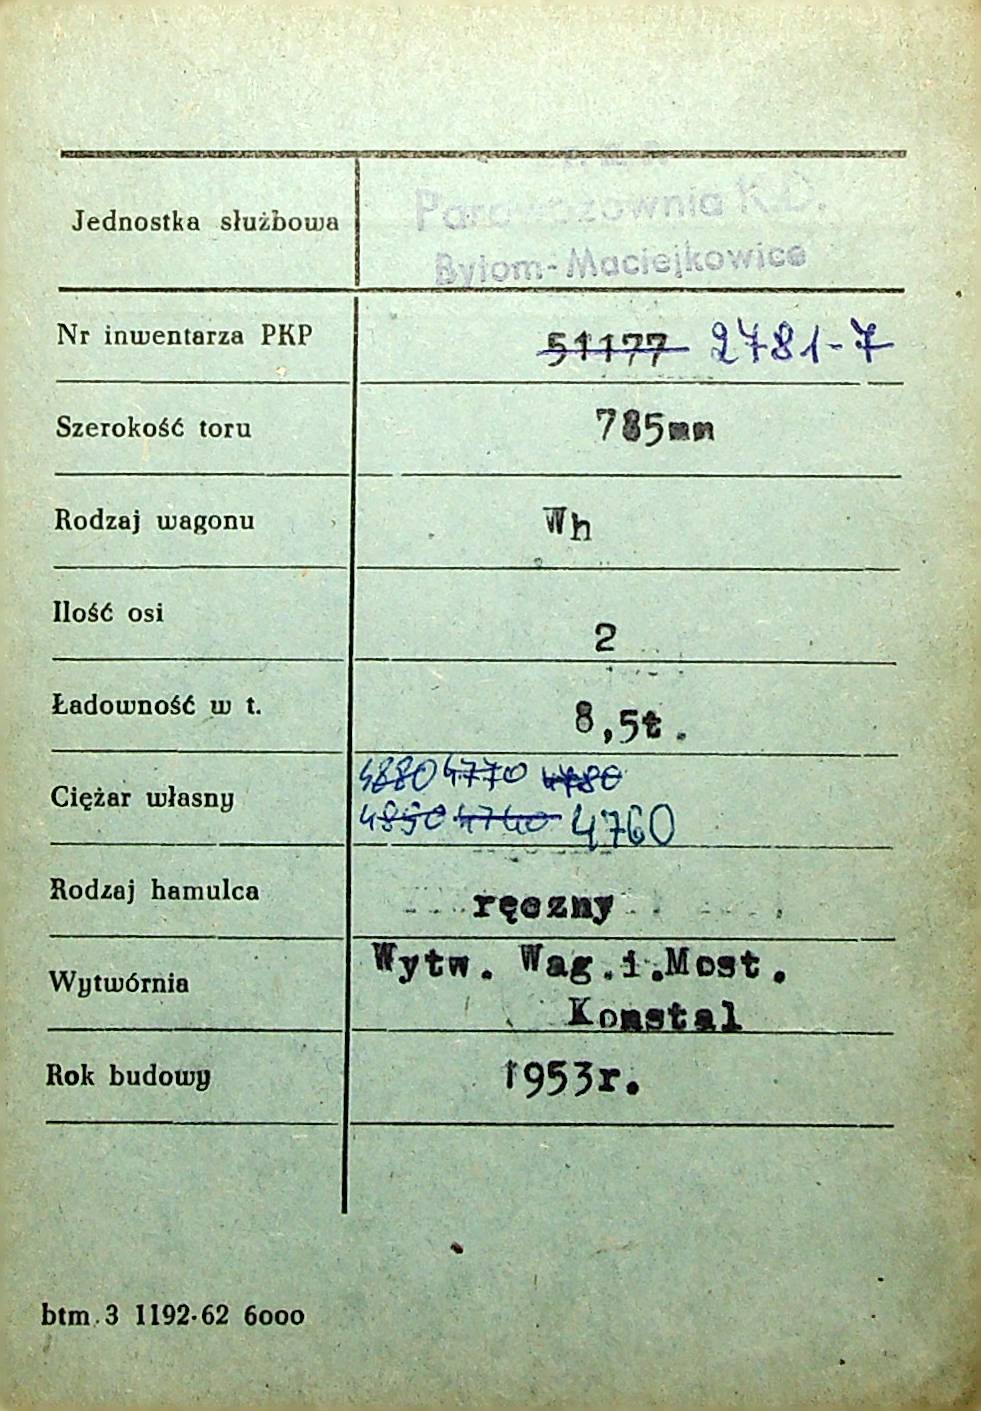 P. K. P.
Jednostka służbowa Parowozownia K.D.
Bytom-Maciejkowice
Nr inwentarza PKP 51177 2781-7
Szerokość toru 785mm
Rodzaj wagonu Wh
Ilość osi 2
Ładowność w t. 8,5t.
4880 4770 4780
Ciężar własny 4850 4740 4760
Rodzaj hamulca ręczny
Wytwórnia Wytw. Wag.i.Most.
Konstal
Rok budowy 1953r.
btm.3 1192-62 6000